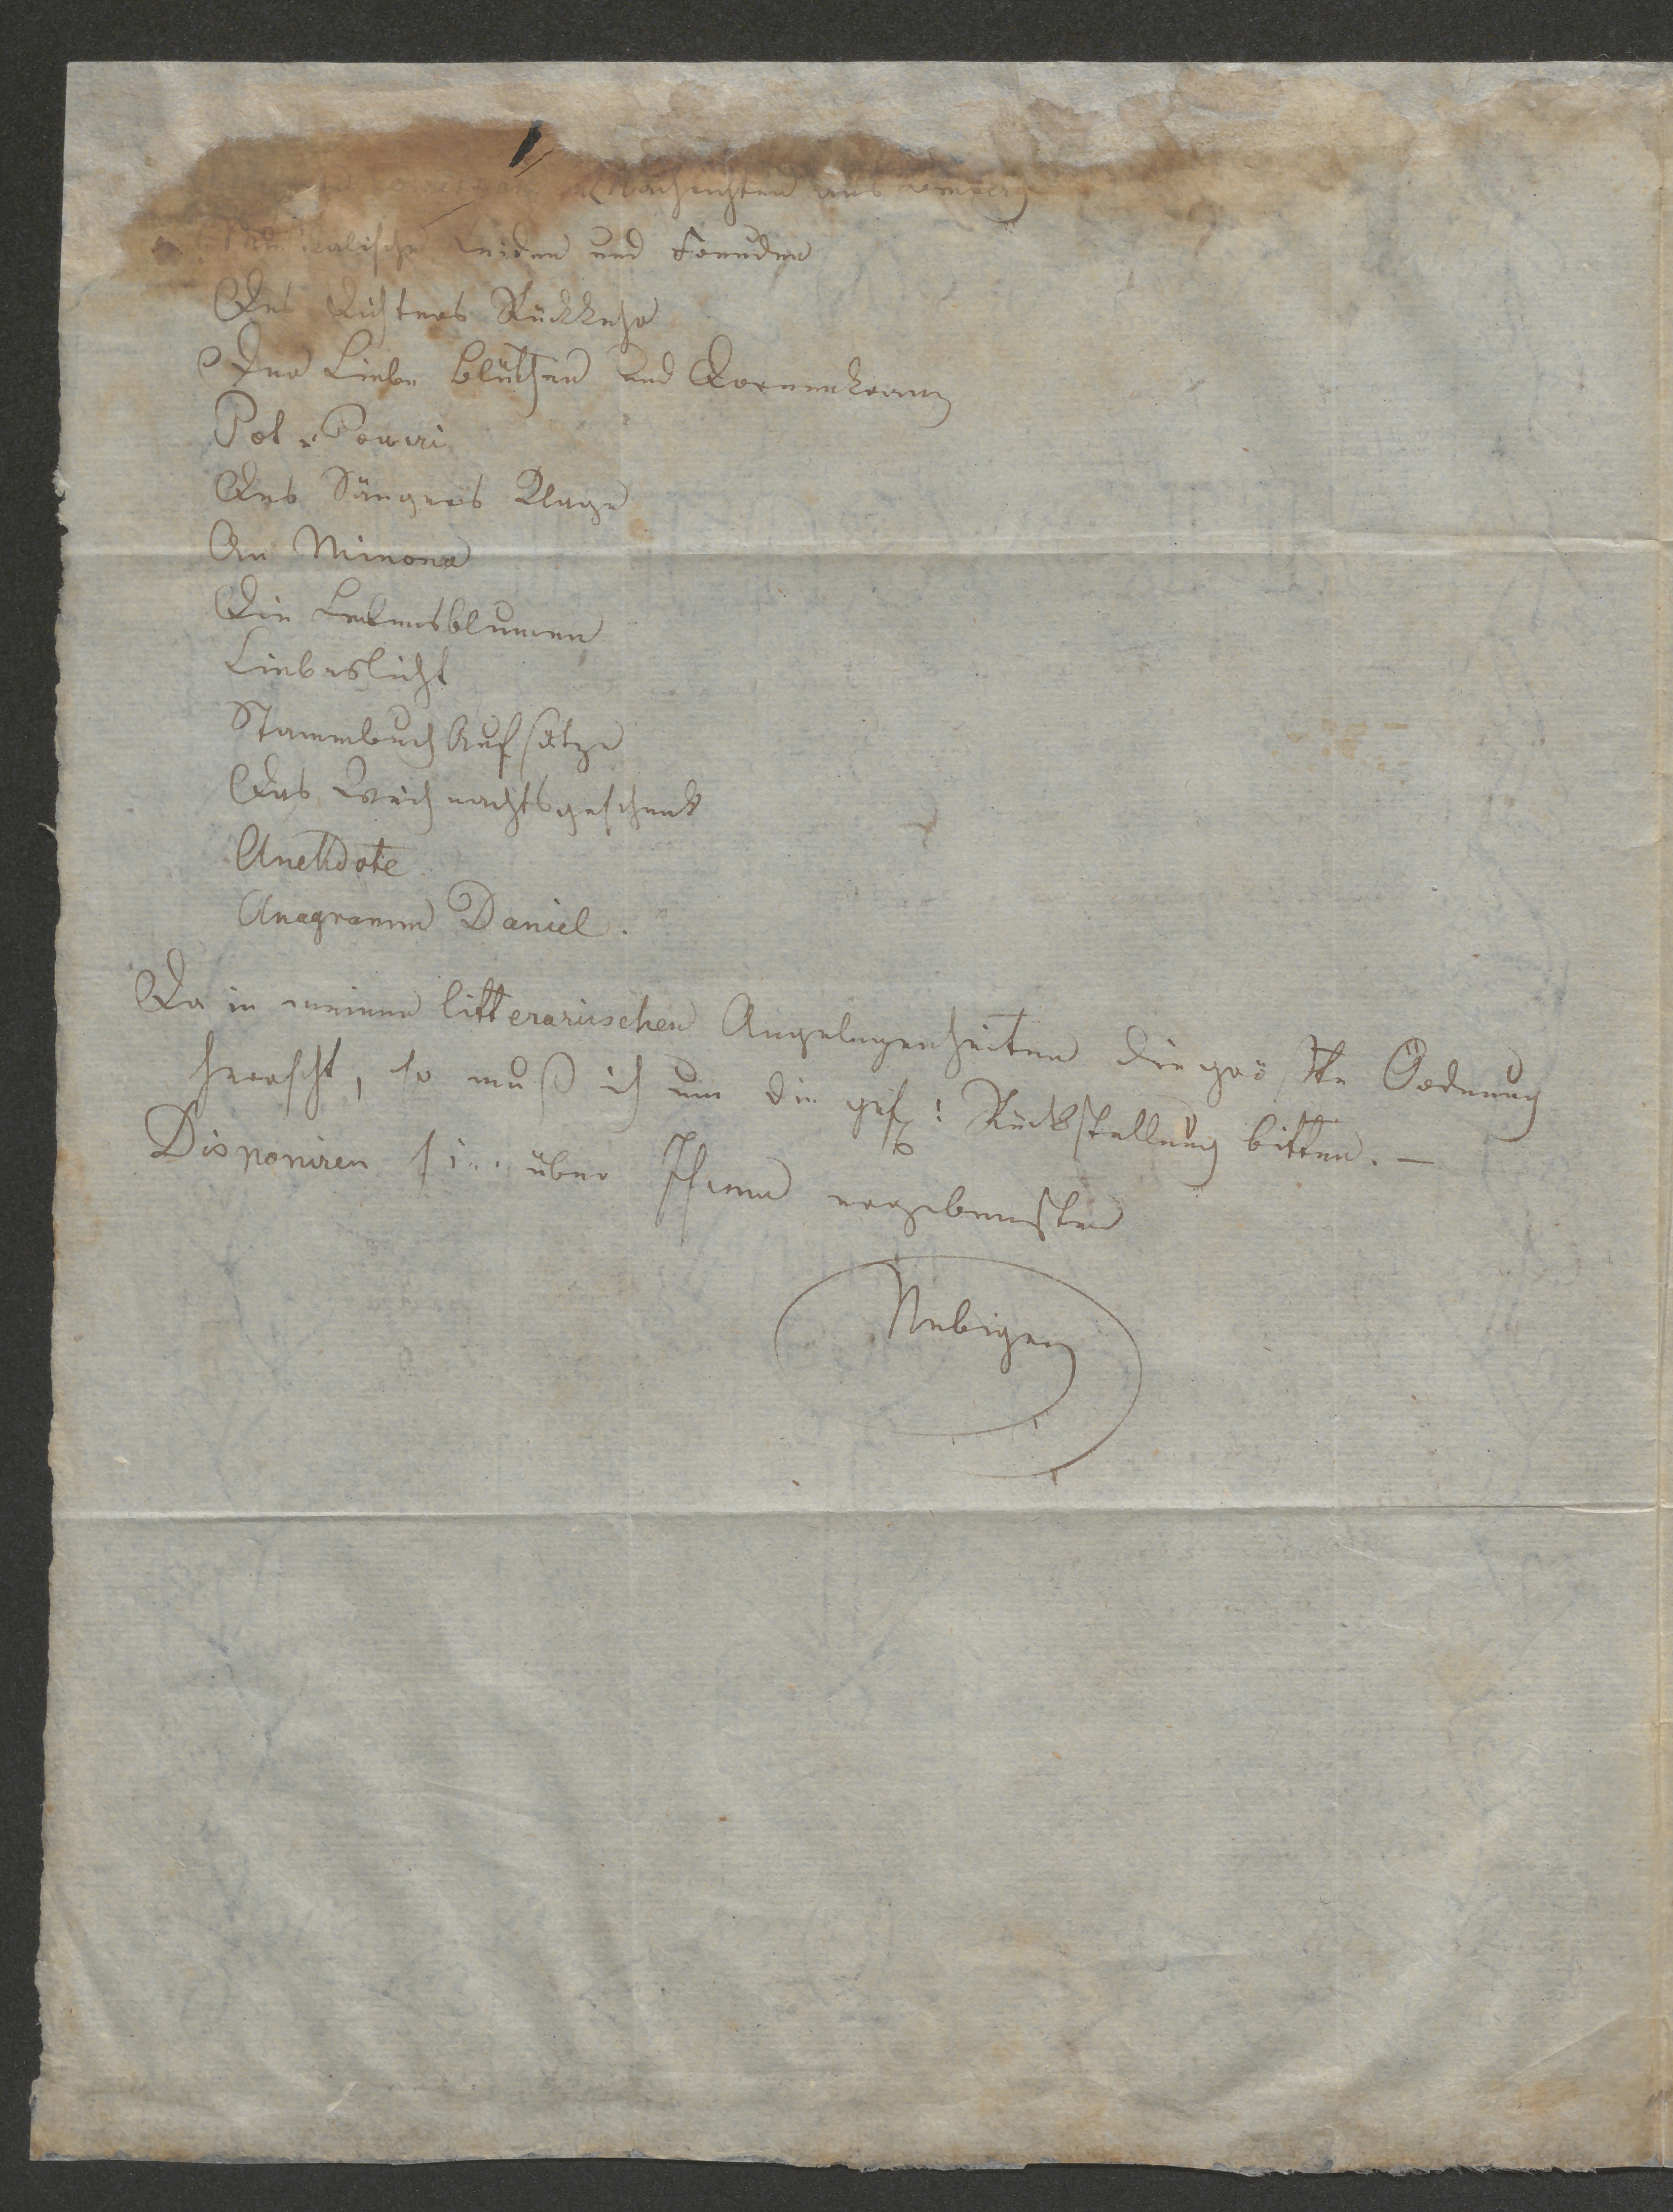 Nachrichten aus Lemberg
Musikalische Leiden und Freuden
Des Dichters Rückkehr
Der Liebe Blüthen und Dornenkranz
Pot Pourri
Des Sängers Klage
An Minona
Die Lebensblumen
Liebeslicht
Stammbuch Aufsätze
Das Weihnachtsgeschenk
Anekdote
Anagramm Daniel.
Da in meinen litterarischen Angelegenheiten die größte Ordnung
herrscht, so muß ich um die gef: Rückstellung bitten. —
Disponiren Sie über Ihren ergebensten